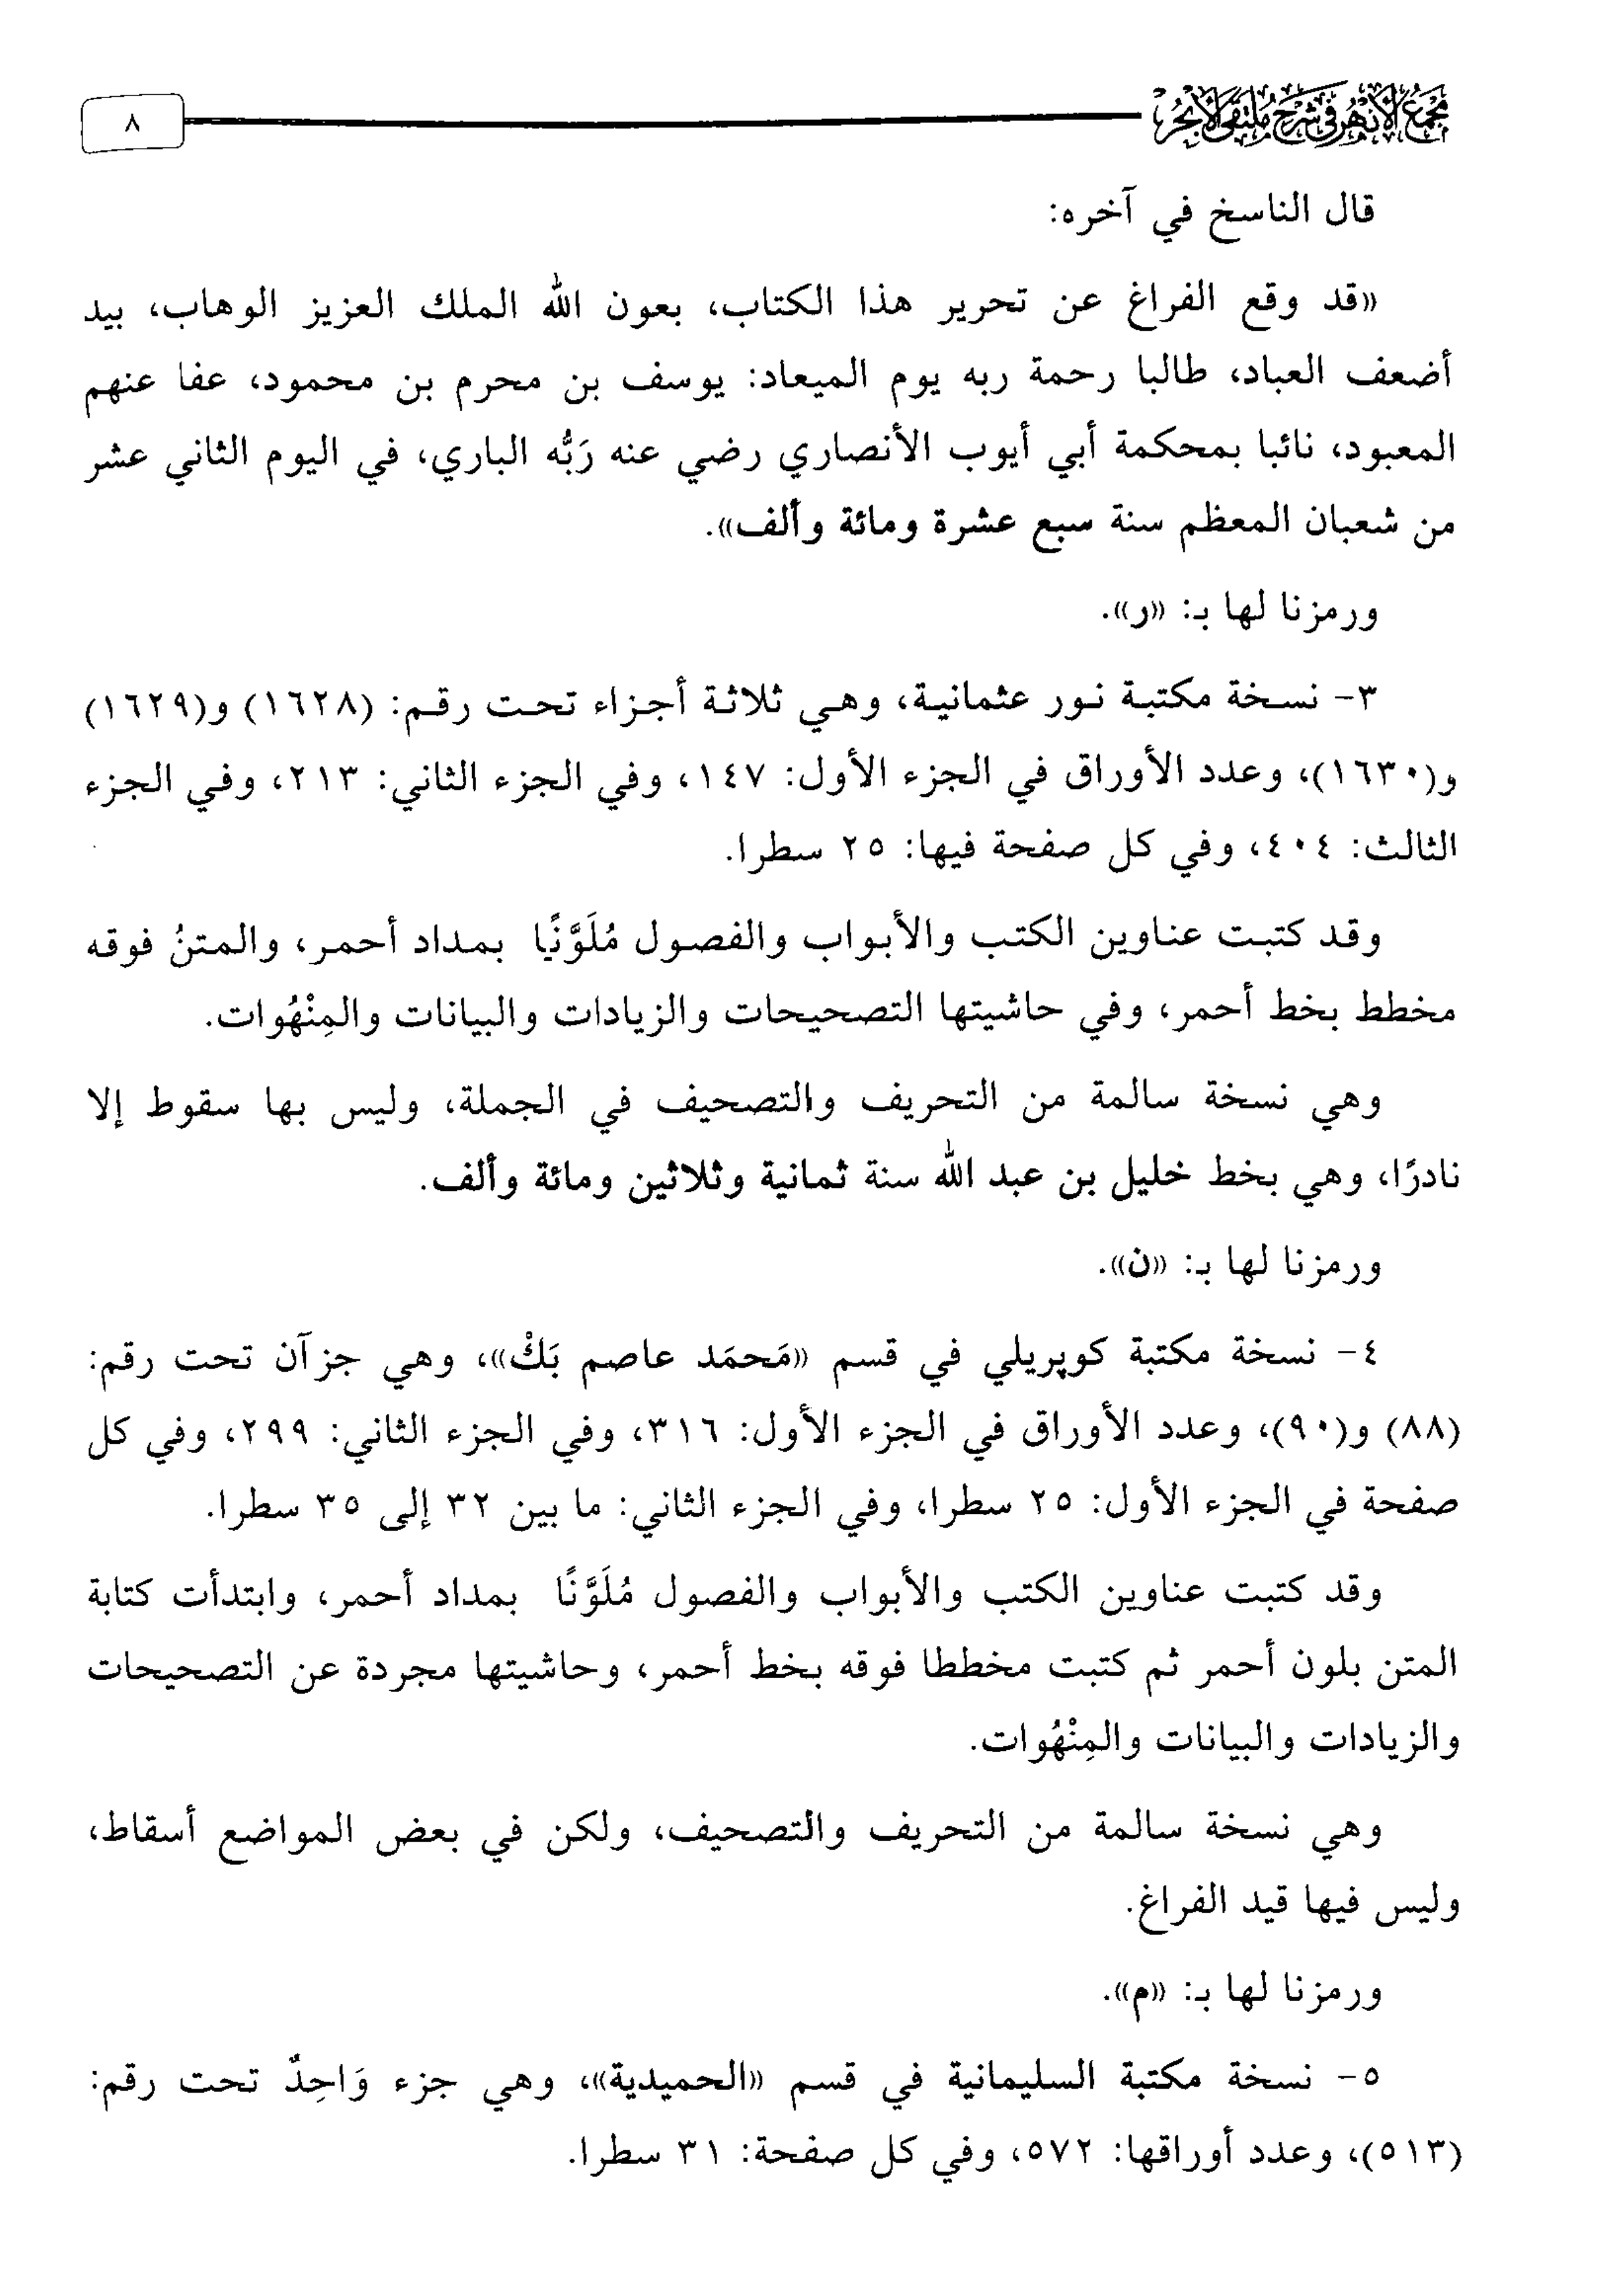 مجمع الأنهر في شرح ملتقى الأبحر
٨
قال الناسخ في آخره:
«قد وقع الفراغ عن تحرير هذا الكتاب، بعون الله الملك العزيز الوهاب، بيد
أضعف العباد، طالبا رحمة ربه يوم الميعاد: يوسف بن محرم بن محمود، عفا عنهم
المعبود، نائبا بمحكمة أبي أيوب الأنصاري رضي عنه رَبُّه الباري، في اليوم الثاني عشر
من شعبان المعظم سنة سبع عشرة ومائة وألف».
ورمزنا لها بـ: «ر».
٣- نسخة مكتبة نور عثمانية، وهي ثلاثة أجزاء تحت رقم: (١٦٢٨) و(١٦٢٩)
و(١٦٣٠)، وعدد الأوراق في الجزء الأول: ١٤٧، وفي الجزء الثاني: ٢١٣، وفي الجزء
الثالث: ٤٠٤، وفي كل صفحة فيها: ٢٥ سطرا.
وقد كتبت عناوين الكتب والأبواب والفصول مُلَوَّنًيا بمداد أحمر، والمتنُ فوقه
مخطط بخط أحمر، وفي حاشيتها التصحيحات والزيادات والبيانات والمِنْهُوات.
وهي نسخة سالمة من التحريف والتصحيف في الجملة، وليس بها سقوط إلا
نادرًا، وهي بخط خليل بن عبد الله سنة ثمانية وثلاثين ومائة وألف.
ورمزنا لها بـ: «ن».
٤- نسخة مكتبة كوپريلي في قسم «مَحمَد عاصم بَكْ»، وهي جزآن تحت رقم:
(٨٨) و(٩٠)، وعدد الأوراق في الجزء الأول: ٣١٦، وفي الجزء الثاني: ٢٩٩، وفي كل
صفحة في الجزء الأول: ٢٥ سطرا، وفي الجزء الثاني: ما بين ٣٢ إلى ٣٥ سطرا.
وقد كتبت عناوين الكتب والأبواب والفصول مُلَوَّنًا بمداد أحمر، وابتدأت كتابة
المتن بلون أحمر ثم كتبت مخططا فوقه بخط أحمر، وحاشيتها مجردة عن التصحيحات
والزيادات والبيانات والمِنْهُوات.
وهي نسخة سالمة من التحريف والتصحيف، ولكن في بعض المواضع أسقاط،
وليس فيها قيد الفراغ.
ورمزنا لها بـ: «م».
٥- نسخة مكتبة السليمانية في قسم «الحميدية»، وهي جزء وَاحِدٌ تحت رقم:
(٥١٣)، وعدد أوراقها: ٥٧٢، وفي كل صفحة: ٣١ سطرا.